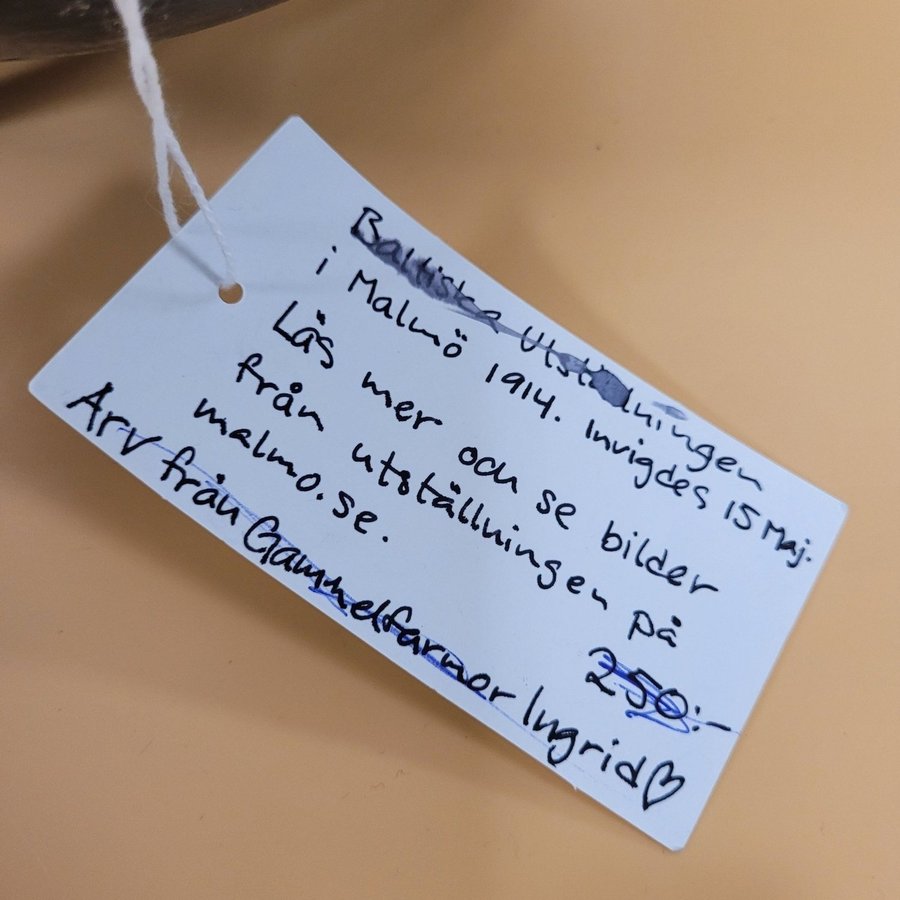 Baltiska Utställningen
i Malmö 1914. Invigdes 15 Maj.
Läs mer och se bilder
från utställningen på
malmo.se.
250:-
Arv från Gammelfarmor Ingrid♡